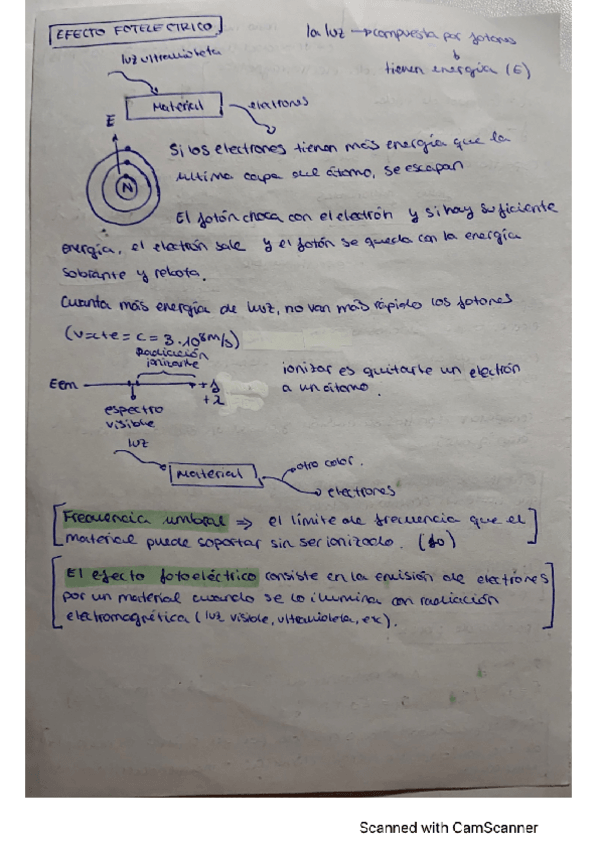 EFECTO FOTELECTRICO
la luz → compuesta por fotones
tienen energía (E)
luz ultravioleta
Material
electrones
E
N
Si los electrones tienen más energía que la
última capa del átomo, se escapan
El fotón choca con el electrón y si hay suficiente
energía, el electrón sale y el fotón se queda con la energía
sobrante y rebota.
Cuanta más energía de luz, no van más rápido los fotones
(v=cte=c=3·10⁸m/s)
Radiación
ionizante
Eem
+λ
espectro
visible
ionizar es quitarle un electrón
a un átomo.
luz
Material
otro color.
electrones
Frecuencia umbral ⇒ el límite de frecuencia que el
material puede soportar sin ser ionizado. (fo)
El efecto fotoeléctrico consiste en la emisión de electrones
por un material cuando se lo ilumina con radiación
electromagnética (luz visible, ultravioleta, ex).
Scanned with CamScanner